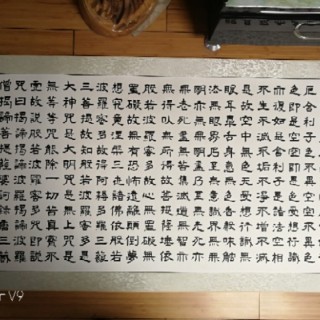 厄舍利子色不異空空不異色
色即是空空即是色受想行識
亦復如是舍利子是諸法空相
不生不滅不垢不淨不增不減
是故空中無色無受想行識無
眼耳鼻舌身意無色聲香味觸
法無眼界乃至無意識界無無
明亦無無明盡乃至無老死亦
無老死盡無苦集滅道無智亦
無得以無所得故菩提薩埵依
般若波羅蜜多故心無罣礙無
罣礙故無有恐怖遠離顛倒夢
想究竟涅槃三世諸佛依般若
波羅蜜多故得阿耨多羅三藐
三菩提故知般若波羅蜜多是
大神咒是大明咒是無上咒是
無等等咒能除一切苦真實不
虛故說般若波羅蜜多咒即說
咒曰揭諦揭諦波羅揭諦波羅
僧揭諦菩提薩婆訶
V9